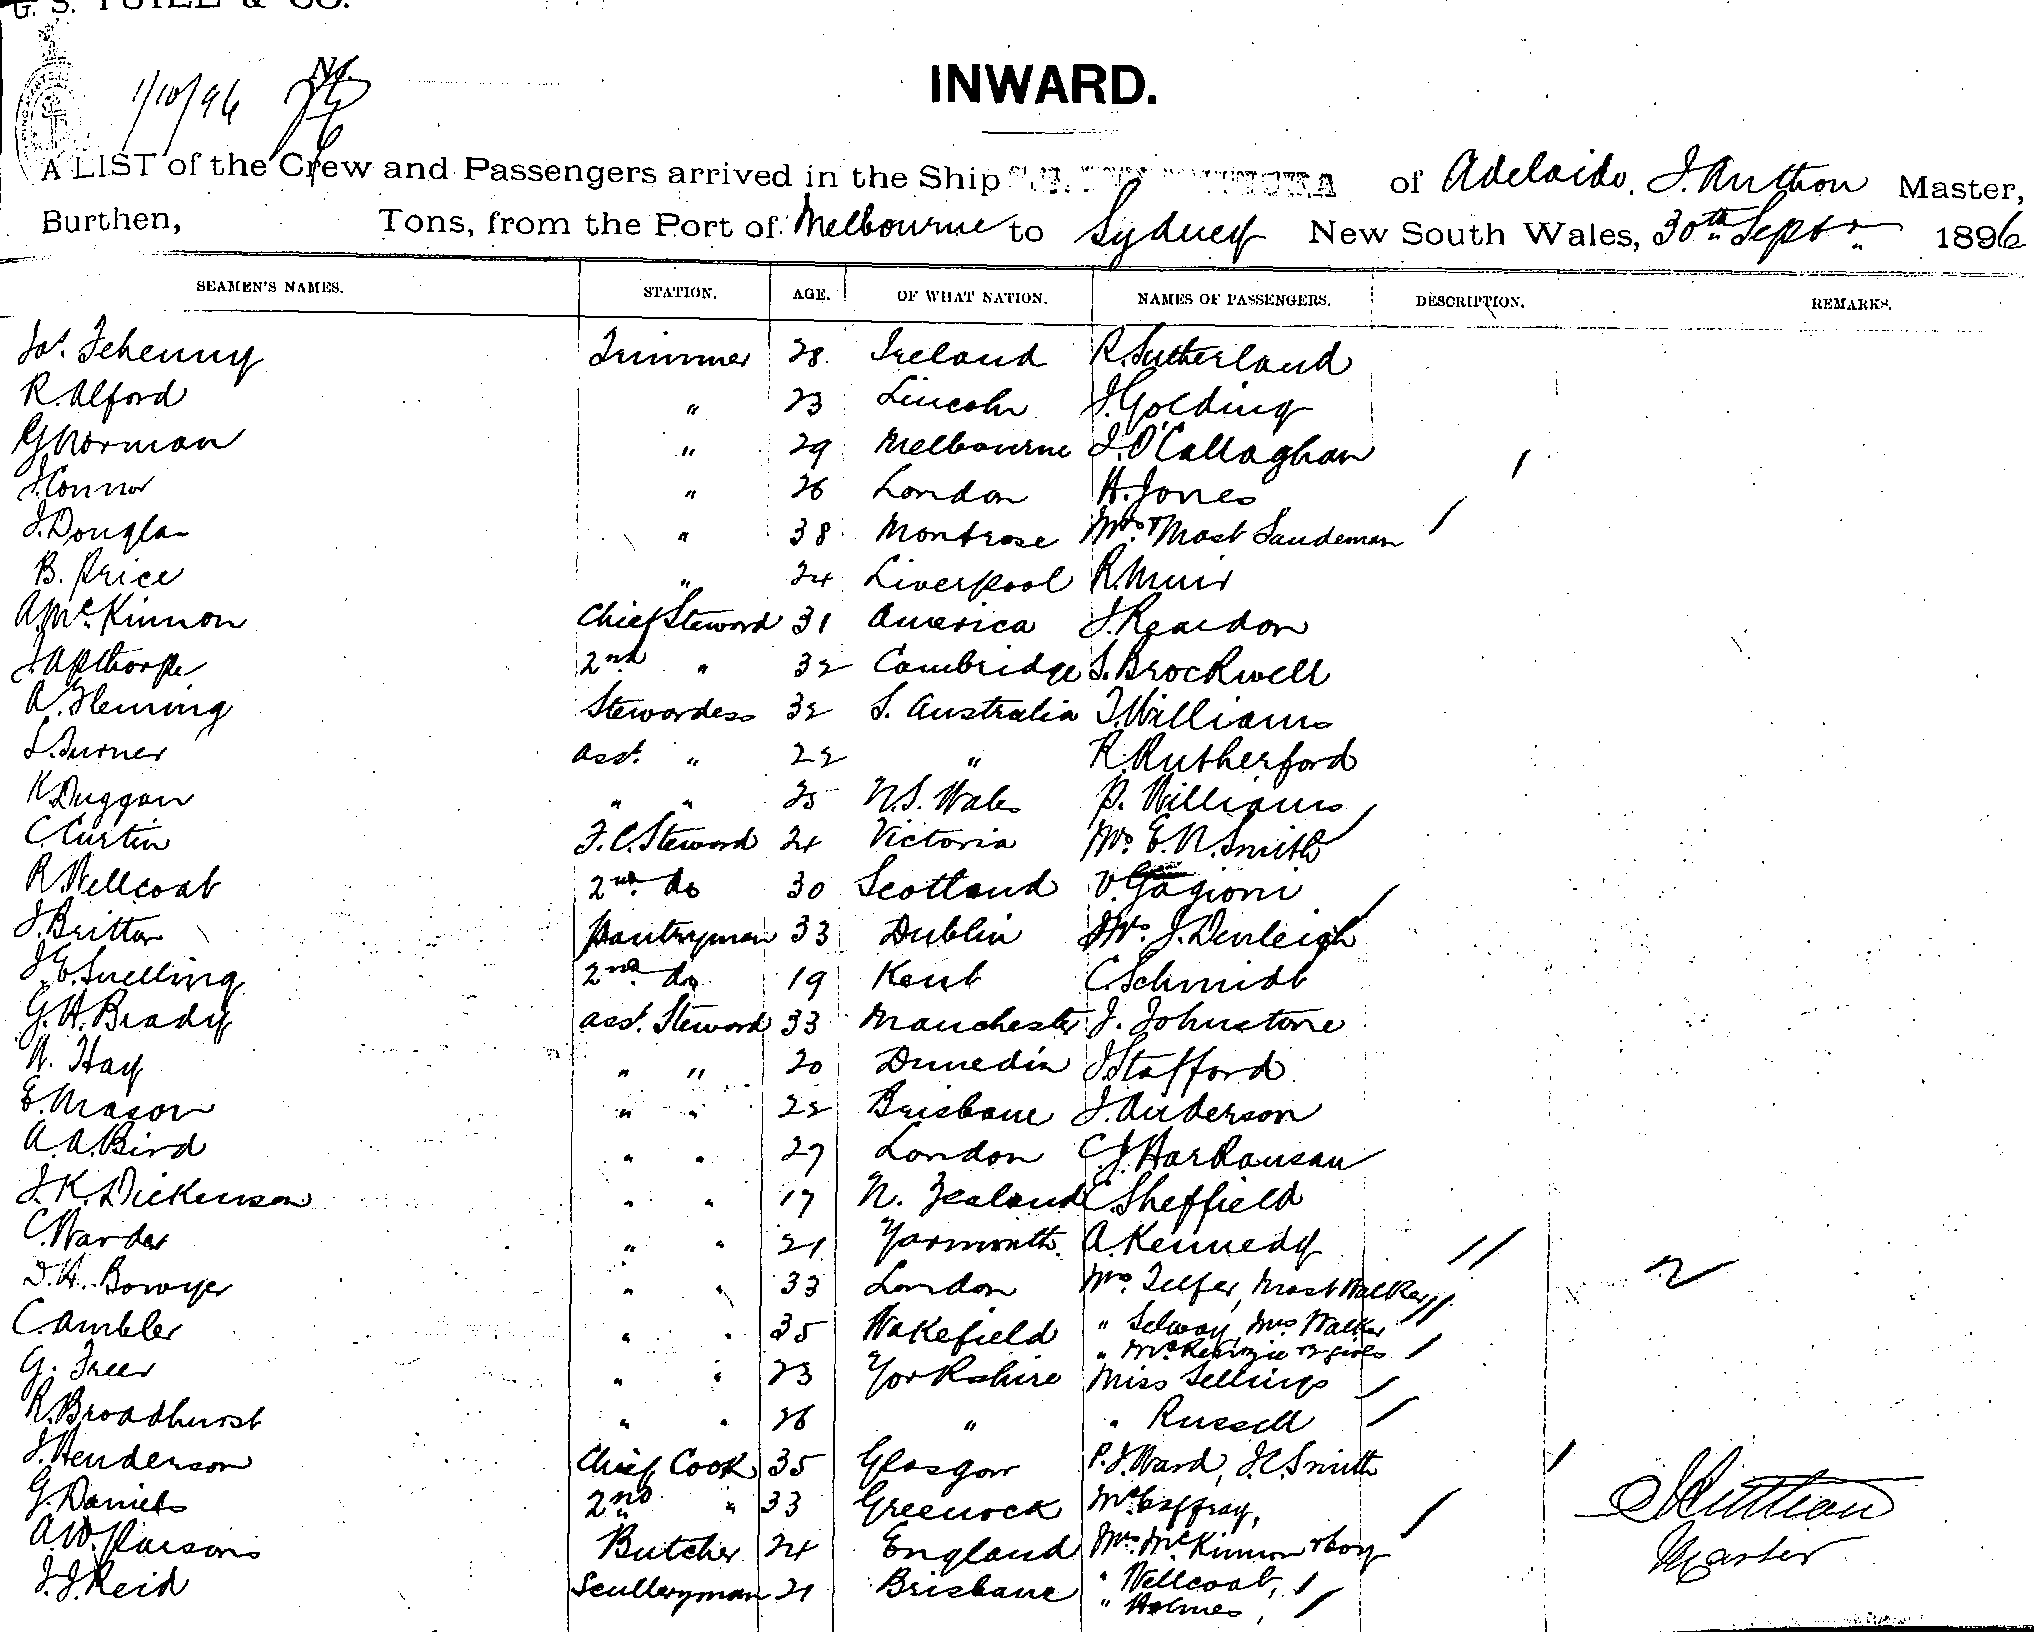 G. S. YUILL & CO.
INWARD.
1/10/96
A LIST of the Crew and Passengers arrived in the Ship of Adelaide, Master,
Burthen, Tons, from the Port of Melbourne to Sydney New South Wales, 30th Septr 1896
SEAMEN'S NAMES. STATION. AGE. OF WHAT NATION. NAMES OF PASSENGERS. DESCRIPTION. REMARKS.
Trimmer 28 Ireland R. Sutherland
R. Alford " 23 Lincoln J. Golding
G. Norman " 29 Melbourne J. O'Callaghan
J. Connor " 26 London H. Jones
J. Douglas " 38 Montrose Mrs & Mast Sandeman
B. Price " 24 Liverpool R. Muir
A. McKinnon Chief Steward 31 America J. Reardon
J. Apthorpe 2nd " 32 Cambridge S. Brockwell
A. Fleming Stewardess 32 S. Australia T. Williams
L. Turner Asst. " 22 " R. Rutherford
K. Duggan " " 25 N.S. Wales P. Williams
C. Curtin F.C. Steward 24 Victoria Mrs. E. N. Smith
R. Wellcoat 2nd do 30 Scotland V. Gagioni
J. Britton Pantryman 33 Dublin Mrs. J. Denleigh
J. E. Snelling 2nd do 19 Kent C. Schmidt
G. H. Brady Asst. Steward 33 Manchester J. Johnstone
W. Hay " " 20 Dunedin J. Stafford
E. Mason " " 22 Brisbane J. Anderson
A. A. Bird " " 27 London C. J.
J. K. Dickenson " " 17 N. Zealand C. Sheffield
C. Warder " " 21 Yarmouth. A. Kennedy
D. H. Bowyer " " 33 London Mrs. Telfer, Mast Walker
C. Ambler " " 35 Wakefield " Selway, Mrs Walker
" McKenzie & 2 girls
G. Freer " " 23 Yorkshire Miss Sellings
R. Broadhurst " " 26 " " Russell
J. Henderson Chief Cook 35 Glasgow P. J. Ward, J. C. Smith
G. Daniels 2nd " 33 Greenock McCaffray,
A. W. Parsons Butcher 24 England Mrs. McKinnon & boy
J. J. Reid Sculleryman 21 Brisbane " Wellcoat,
" Holmes,
Master